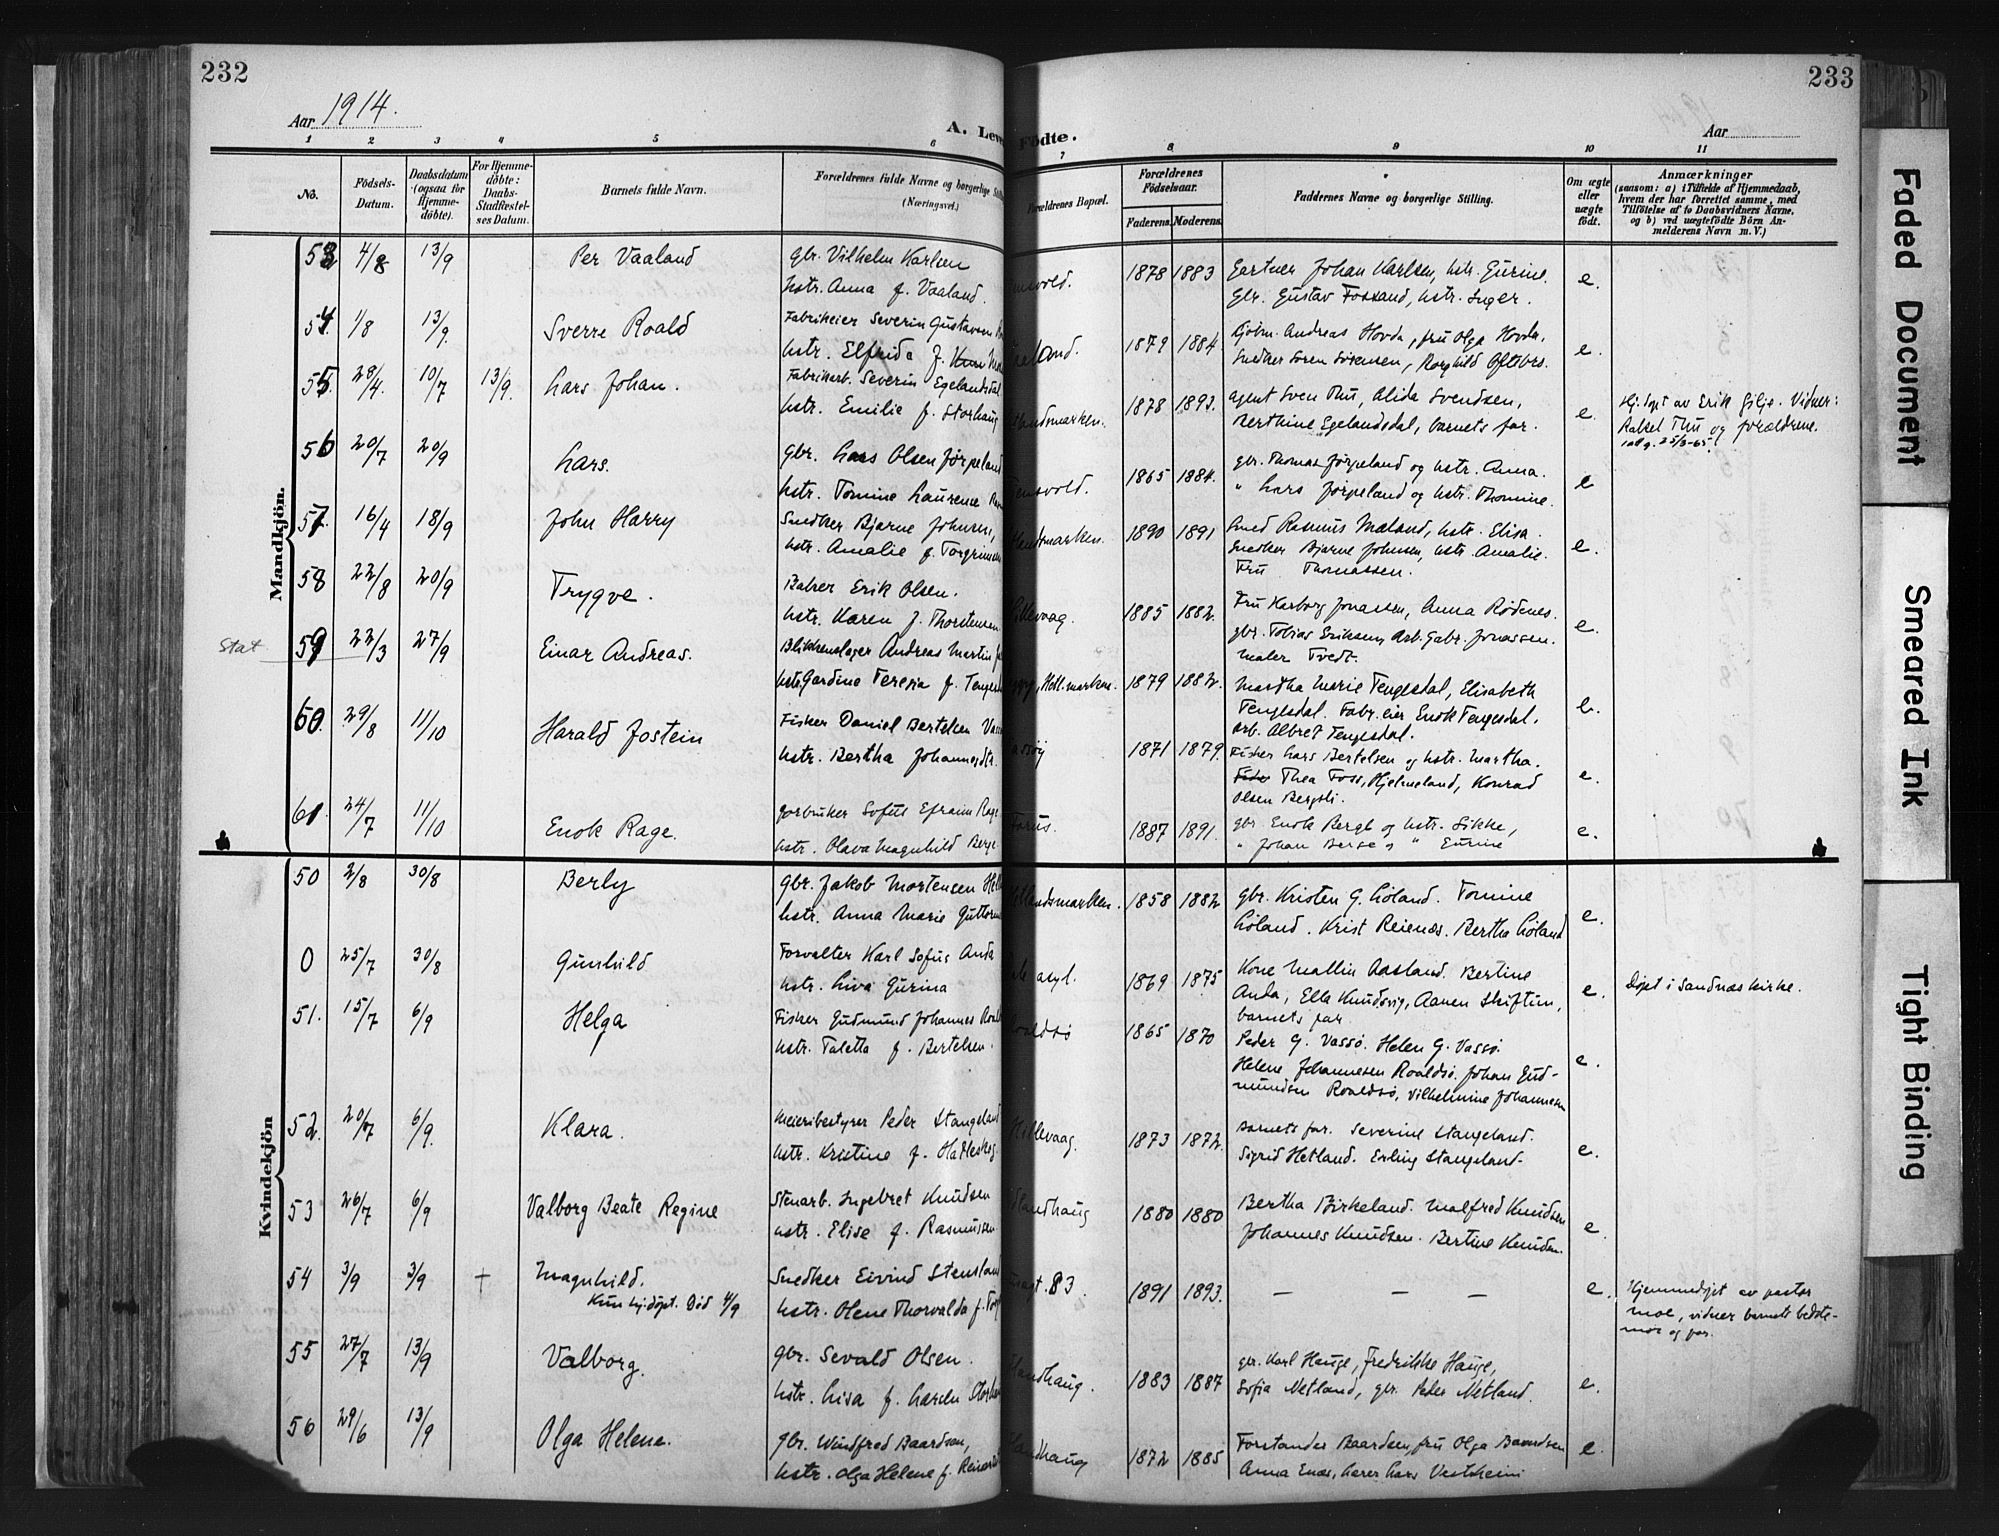 232
233
Aar 1914.
A. Leve
Födte.
Aar
1 2 3 4 5 6 7 8 9 10 11
No.
Födsels-Datum.
Daabsdatum (ogsaa for Hjemme-döbte).
For Hjemme-döbte: Daabs-Stadfæstel-ses Datum.
Barnets fulde Navn.
Forældrenes fulde Navne og borgerlige Still (Næringsvei.)
Forældrenes Bopæl.
Forældrenes Födselsaar.
Faderens.
Moderens.
Faddernes Navne og borgerlige Stilling.
Om ægte eller uægte födt.
Anmærkninger
(saasom: a) i Tilfælde af Hjemmedaab, hvem der har forrettet samme, med Tilföielse af to Daabsvidners Navne, og b) ved uægtefödte Börn An-melderens Navn m. V.)
Mandkjön.
53 4/8 13/9 Per Vaaland gbr. Vilhelm Karlsen 1878 1883 Gartner Johan Karlsen, hstr. Gurine. e.
hstr. Anna f. Vaaland. Gbr. Gustav Fossand, hstr. Inger.
54 1/8 13/9. Sverre Roald Fabrikeier Severin Gustavsen 1879 1884 Kjøbm. Andreas Hovda, fru Olga Hovda. e.
hstr. Elfrida f. Snedker Søren Sørensen, Borghild
55. 28/4. 10/7 13/9. Lars Johan. Fabrikarb. Severin Egelandsdal 1878 1893. agent Sven Thu, Alida Svendsen, e. Hj.døpt av Erik Gilje. Vidner:
hstr. Emilie f. Storhaug andsmarken. Berthine Egelandsdal, barnets far. Rakel Thu og forældrene.
56 20/7 20/9 Lars. gbr. Lars Olsen Jørpeland 1865 1884. gbr. Thomas Jørpeland og hstr. Anna. e
hstr. Tomine Laurence " Lars Jørpeland og hstr. Thomine.
57. 16/4 18/9 John Harry Snedker Bjarne Johnsen, 1890 1891 Smed Rasmus Mæland, hstr. Elisa. e.
hstr. Amalie f. Torgrimsen Snedker Bjarne Johnsen, hstr. Amalie.
Fru Thomassen.
58 22/8 20/9 Trygve. Baker Erik Olsen. Hillevaag. 1885 1882. Fru Karborg Jonassen, Anna Rødnes. e.
hstr. Karen f. Thorstensen gbr. Tobias Eriksen, Arb. Gabr. Jonassen.
Maler Tvedt.
Stat
59 22/3 27/9 Einar Andreas. Blikkenslager Andreas Martin 1879 1882. Martha Marie Tengesdal, Elisabeth e.
hstr. Gardine Teresia f. Tenges Hetl.marken. Tengesdal. Fabr.eier Enok Tengesdal.
Arb. Albret Tengesdal.
60. 29/8 11/10 Harald Jostein Fisker Daniel Bertelsen Vass 1871 1879. Fisker Lars Bertelsen og hstr. Martha. e.
hstr. Bertha Johannesdtr. Thea Foss, Hjelmeland, Konrad
Olsen Bergsli.
61. 24/7 11/10 Enok Rage. Efraim Rage Forus. 1887 1891. gbr. Enok Berge og hstr. Sikke, e.
hstr. Olava Magnhild Berge " Johan Berge og " Gurine
Kvindekjön
50 2/8 30/8 Berly gbr. Jakob Mortensen Hetlandsmarken. 1858 1882 gbr. Kristen G. Loland. Tomine e.
hstr. Anna Marie Guttorms Loland. Krist Reienæs. Bertha Loland
0 25/7 30/8 Gunhild Forvalter Karl Sofus Anda asyl. 1869 1875 Kone Mallin Aasland. Bertine e. Døpt i Sandnæs kirke.
hstr. Liva Gurina Anda, Ella Knudsvig, Aanen Skiftun,
barnets far.
51. 15/7 6/9 Helga Fisker Gudmund Johannes Roald 1865 1870 Peder G. Vassø. Helen G. Vassø. e.
hstr. Taletta f. Bertelsen. Helene Johannesen Roaldsø. Johan Gud-
mundsen Roaldsø, Vilhelmine Johannesen
52. 20/7 6/9. Klara. Meieribestyrer Peder Stangeland Hillevaag. 1873 1872. Barnets far. Severine Stangeland. e.
hstr. Kristine f. Hatleskog Sigrid Hetland. Erling Stangeland.
53 26/7 6/9 Valborg Beate Regine Stenarb. Ingebret Knudsen 1880 1880 Bertha Birkeland. Malfred Knudsen e.
hstr. Elise f. Rasmussen Johannes Knudsen. Bertine Knudsen.
54 3/9 3/9 + Magnhild. Snedker Eivind Stensland 83. 1891 1893. — — — e. Hjemmedøpt av pastor
Kun hj.døpt. Død 4/9 hstr. Olene Thorvalda f. Moe, vidner barnets bedste-
mor og far.
55 27/7 13/9 Valborg. gbr. Sevald Olsen. 1883 1887 gbr. Karl Hauge, Fredrikke Hauge, e.
hstr. Lisa f. Larsen Sofia Netland, gbr. Peder Netland.
56 29/6 13/9 Olga Helene. gbr. Windfred Baardsen, 1872 1885 Forstander Baardsen, fru Olga Baardsen e.
hstr. Olga Helene f. Anna Enæs, lærer Lars Vestheim
Faded Document
Smeared Ink
Tight Binding